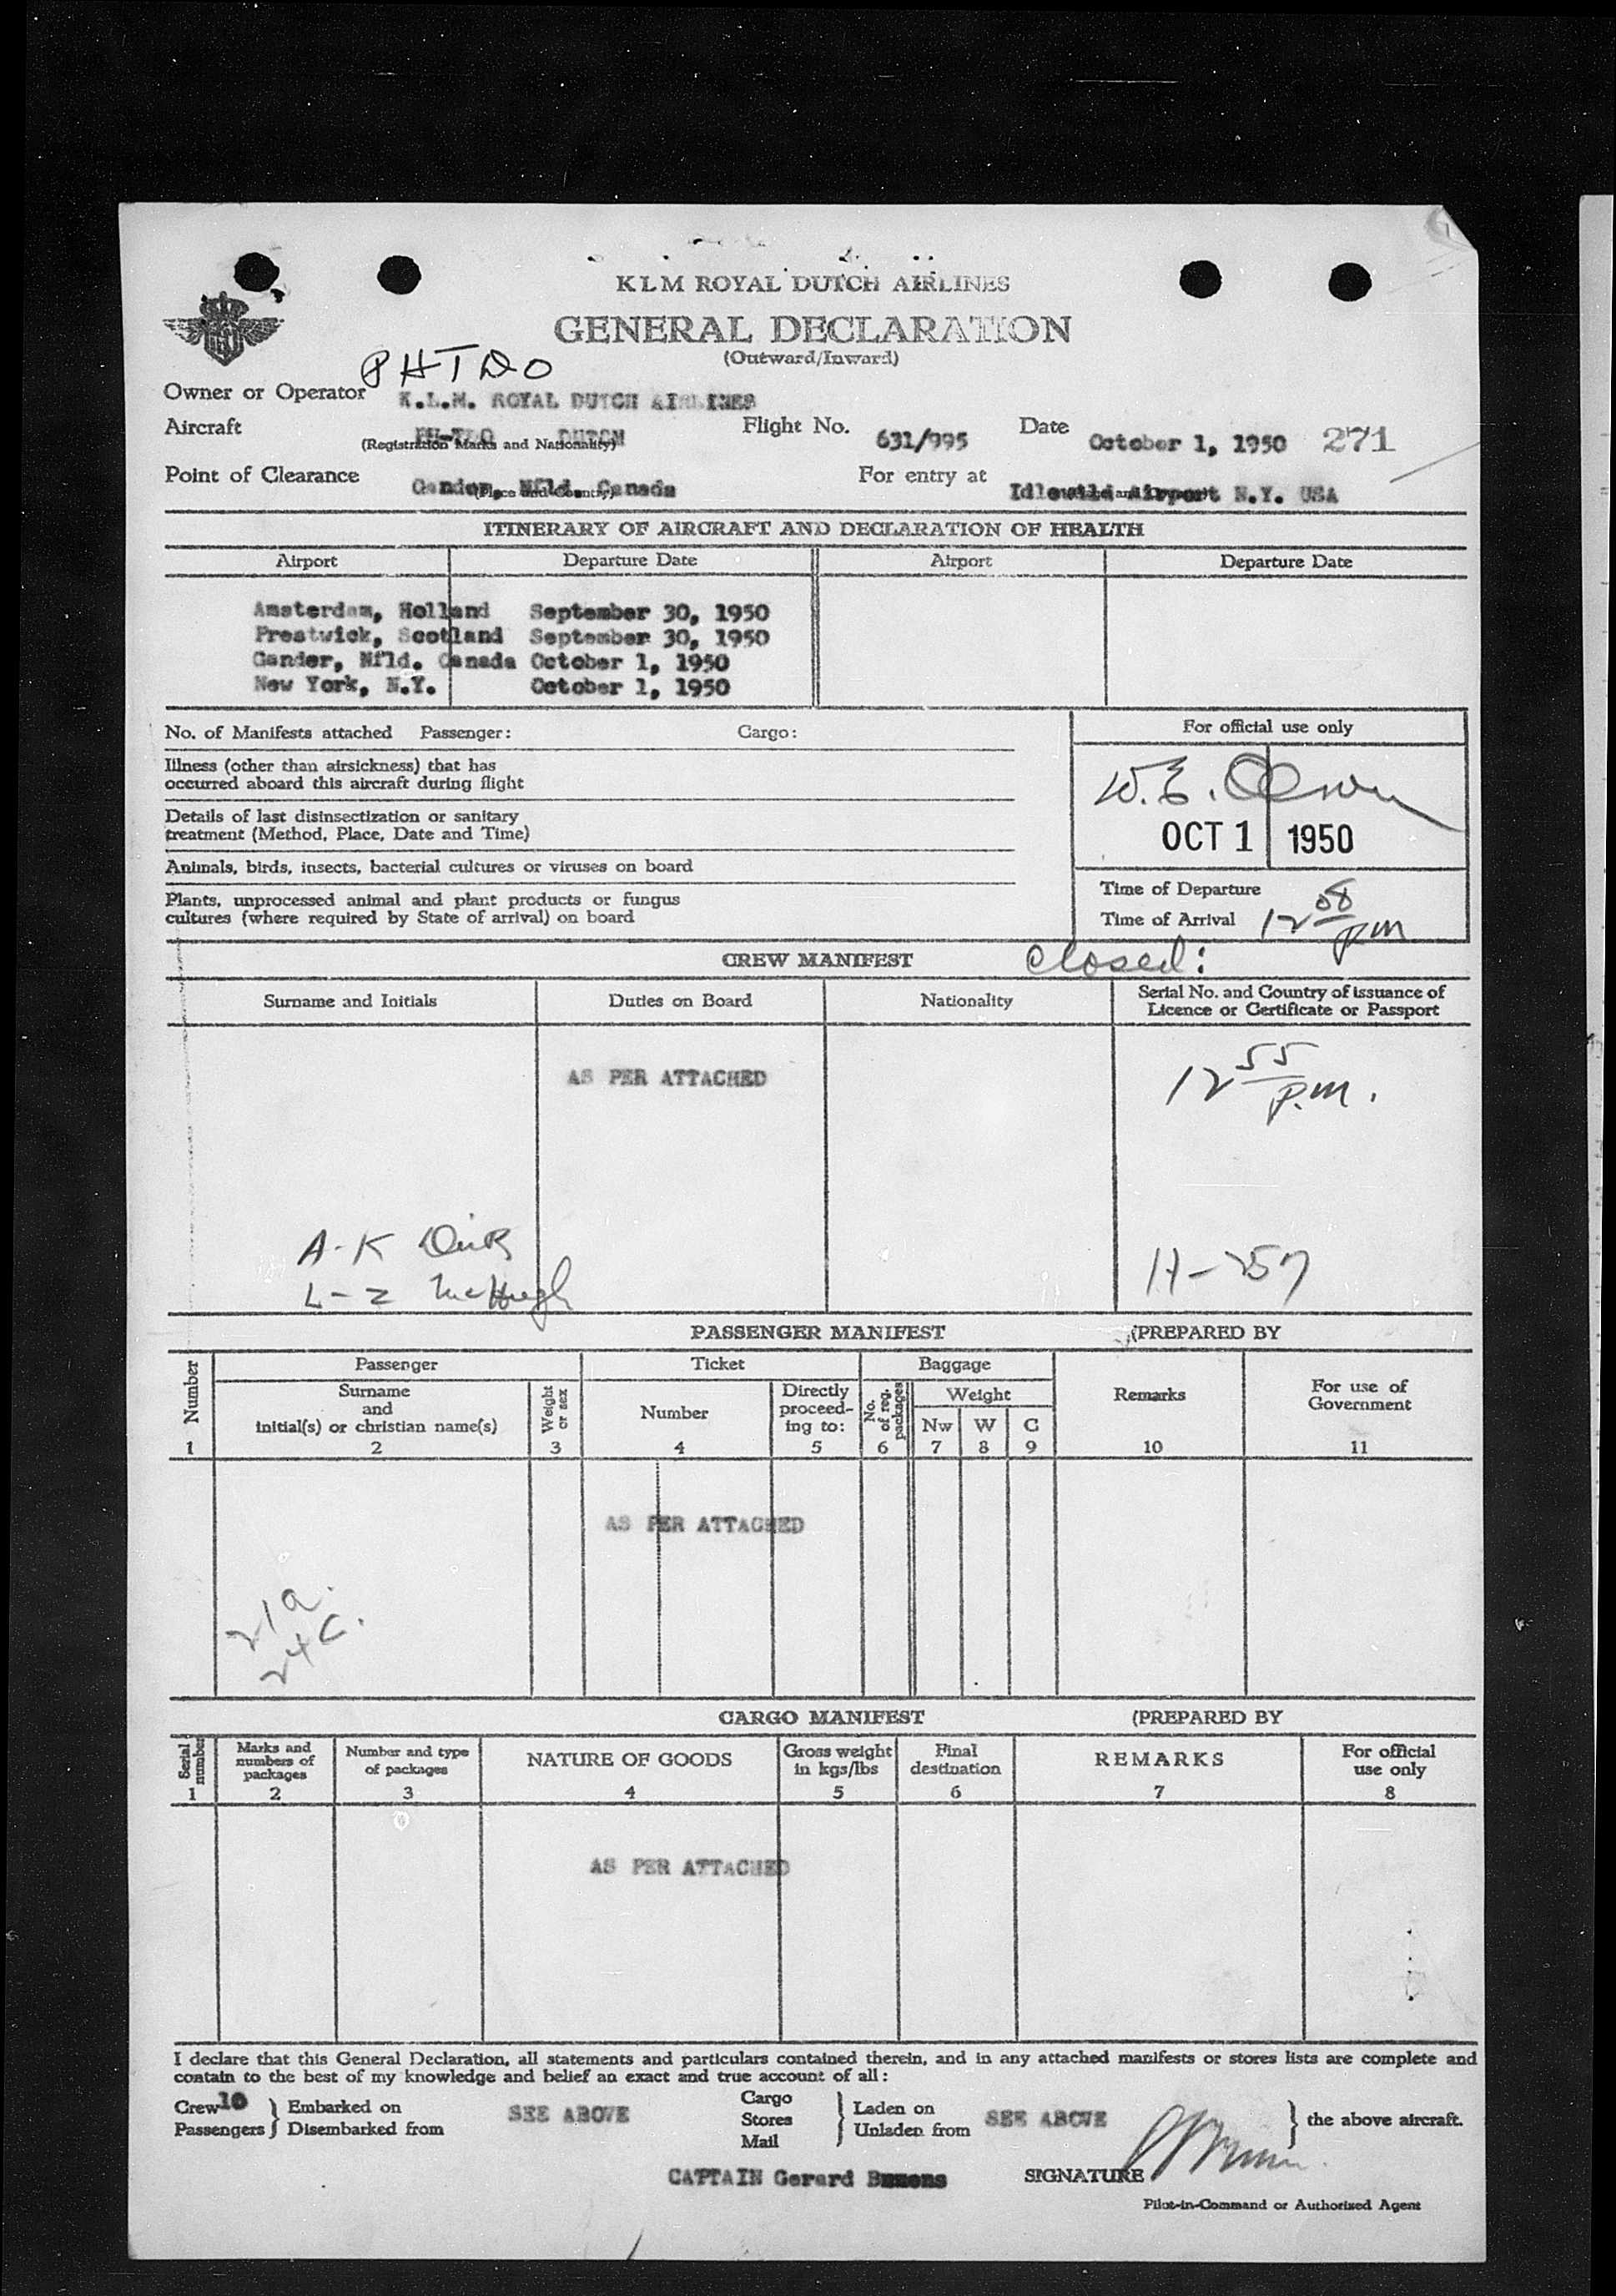 KLM ROYAL DUTCH AIRLINES
GENERAL DECLARATION
(Outward/Inward)
PHTDO
Owner or Operator K.L.M. ROYAL DUTCH AIRLINES
Aircraft DUTCH Flight No. 631/995 Date October 1, 1950 271
(Registration Marks and Nationality)
Point of Clearance Gander, Nfld. Canada For entry at Idlewild Airport N.Y. USA
(Place and Country)
ITINERARY OF AIRCRAFT AND DECLARATION OF HEALTH
Airport Departure Date Airport Departure Date
Amsterdam, Holland September 30, 1950
Prestwick, Scotland September 30, 1950
Gander, Nfld. Canada October 1, 1950
New York, N.Y. October 1, 1950
No. of Manifests attached Passenger: Cargo:
For official use only
Illness (other than airsickness) that has
occurred aboard this aircraft during flight
W. E. Olsen
Details of last disinsectization or sanitary
treatment (Method, Place, Date and Time)
OCT 1 1950
Animals, birds, insects, bacterial cultures or viruses on board
Plants, unprocessed animal and plant products or fungus
cultures (where required by State of arrival) on board
Time of Departure
Time of Arrival 12 08 pm
CREW MANIFEST closed:
Surname and Initials Duties on Board Nationality Serial No. and Country of issuance of
Licence or Certificate or Passport
AS PER ATTACHED
12 55 p.m.
A-K
L-Z McHugh
H-257
PASSENGER MANIFEST (PREPARED BY
Number Passenger Ticket Baggage Remarks For use of
Government
Surname
and
initial(s) or christian name(s)
Weight
or sex
Number
Directly
proceed-
ing to:
No.
of reg.
packages
Weight
Nw W C
1 2 3 4 5 6 7 8 9 10 11
AS PER ATTACHED
21a.
24c.
CARGO MANIFEST (PREPARED BY
Serial
number
Marks and
numbers of
packages
Number and type
of packages
NATURE OF GOODS
Gross weight
in kgs/lbs
Final
destination
REMARKS
For official
use only
1 2 3 4 5 6 7 8
AS PER ATTACHED
I declare that this General Declaration, all statements and particulars contained therein, and in any attached manifests or stores lists are complete and
contain to the best of my knowledge and belief an exact and true account of all:
Crew 10
Passengers
Embarked on
Disembarked from
SEE ABOVE
Cargo
Stores
Mail
Laden on
Unladen from
SEE ABOVE
the above aircraft.
CAPTAIN Gerard SIGNATURE
Pilot-in-Command or Authorized Agent